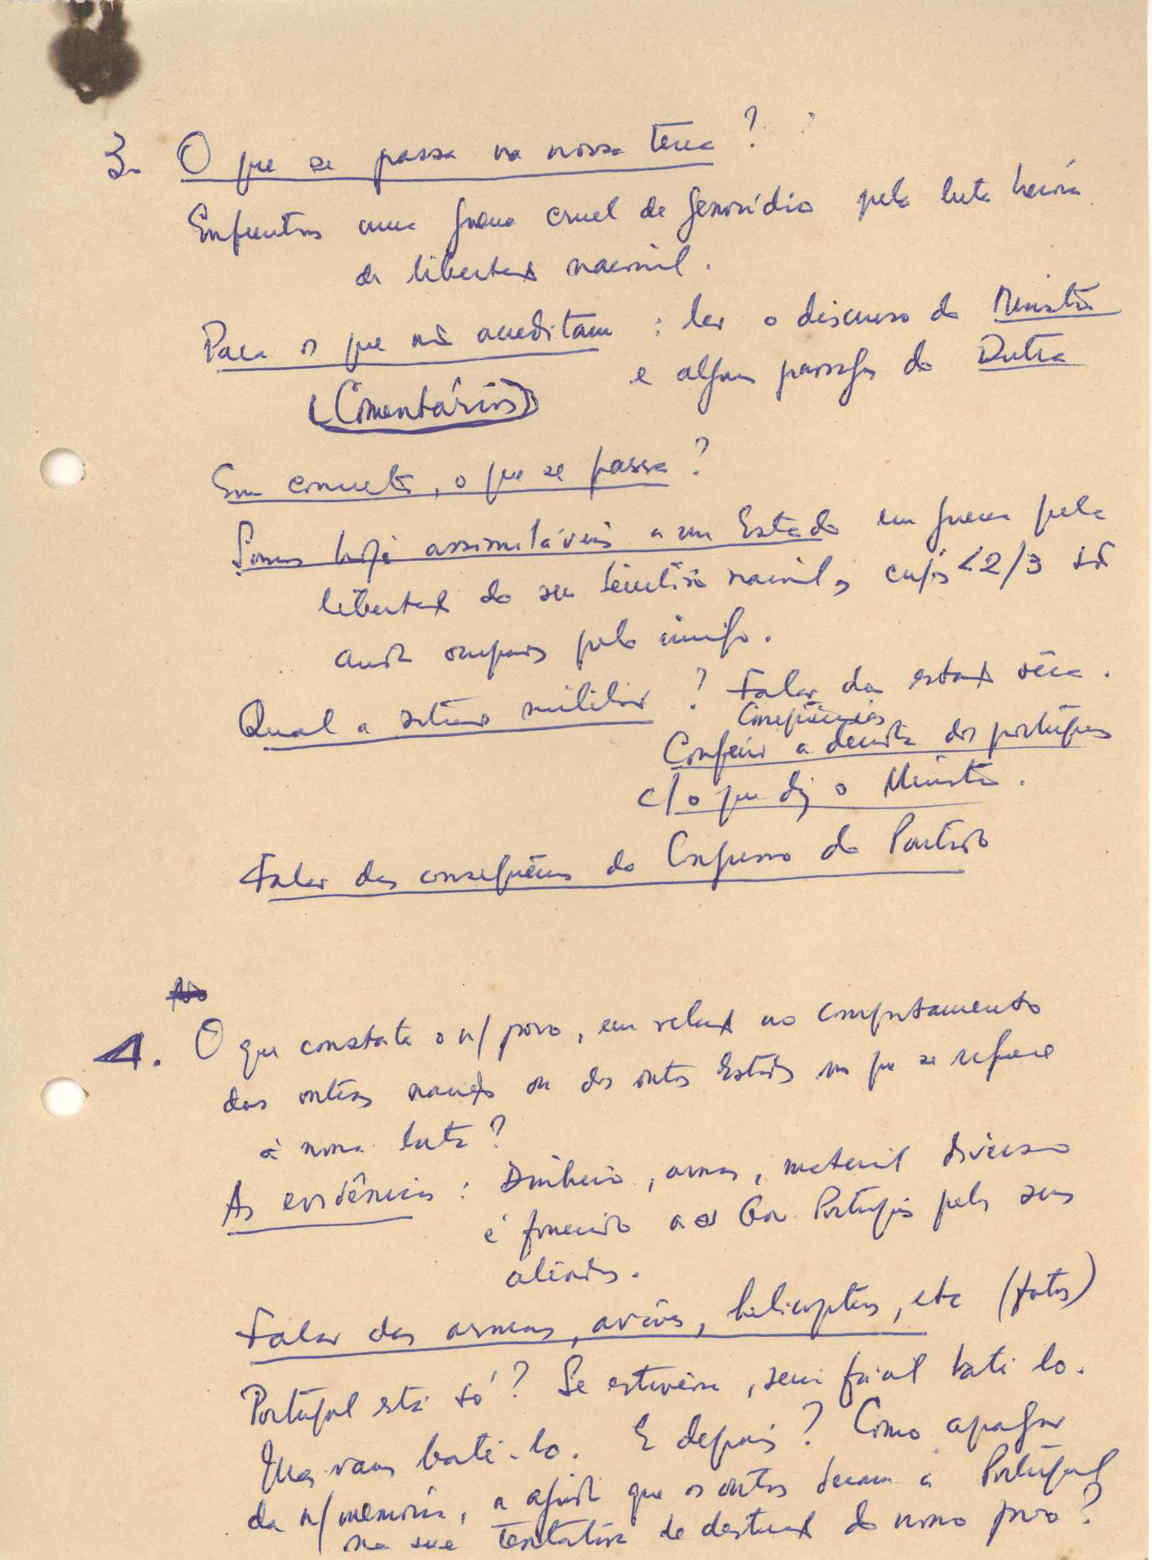 3. O que se passa na nossa terra?
Enfrentamos uma guerra cruel de genocídio pela luta heróica
de libertação nacional.
Para os que não acreditam : ler o discurso do Ministro
e algumas passagens do Dutra
(Comentários)
Em concreto, o que se passa?
Somos hoje assimiláveis a um Estado em guerra pela
libertação do seu território nacional, cujos <2/3 são
ainda ocupados pelo inimigo.
Qual a situação militar? Falar da estação sêca.
Consequências
Conferir a derrota dos portugueses
c/ o que diz o Ministro.
Falar das consequências do Congresso do Partido
No
4. O que constata o n/ povo, em relação ao comportamento
das outras nações ou dos outros Estados no que se refere
à nossa luta?
As evidências : Dinheiro, armas, material diverso
é fornecido aos Gov. Português pelos seus
aliados.
Falar das armas, aviões, helicópteros, etc (fotos)
Portugal está só? Se estivesse, seria fácil batê-lo.
Mas vamos batê-lo. E depois? Como apagar
da n/ memória, a ajuda que os outros deram a Portugal
na sua tentativa de destruição do nosso povo?